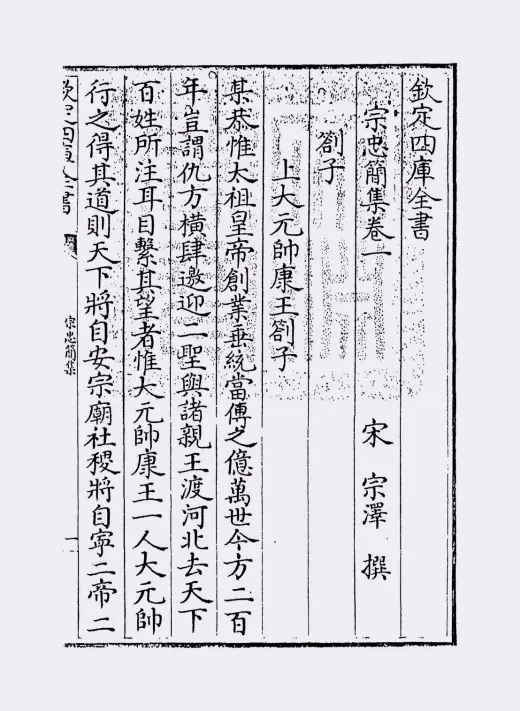 欽定四庫全書
宗忠簡集卷一
宋 宗澤 撰
劄子
上大元帥康王劄子
某恭惟太祖皇帝創業垂統當傳之億萬世今方二百
年豈謂仇方橫肆邀迎二聖與諸親王渡河北去天下
百姓所注耳目繫其望者惟大元帥康王一人大元帥
行之得其道則天下將自安宗廟社稷將自寧二帝二
欽定四庫全書
宗忠簡集
一